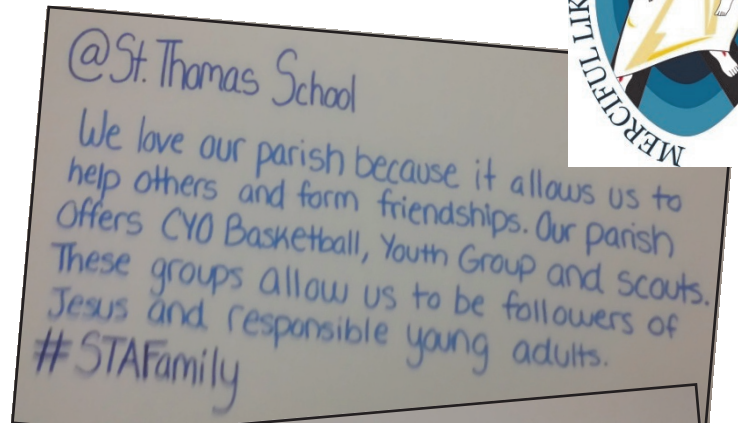 @St. Thomas School
We love our parish because it allows us to
help others and form friendships. Our parish
offers CYO Basketball, Youth Group and scouts.
These groups allow us to be followers of
Jesus and responsible young adults.
#STAFamily
MERCIFUL LIK